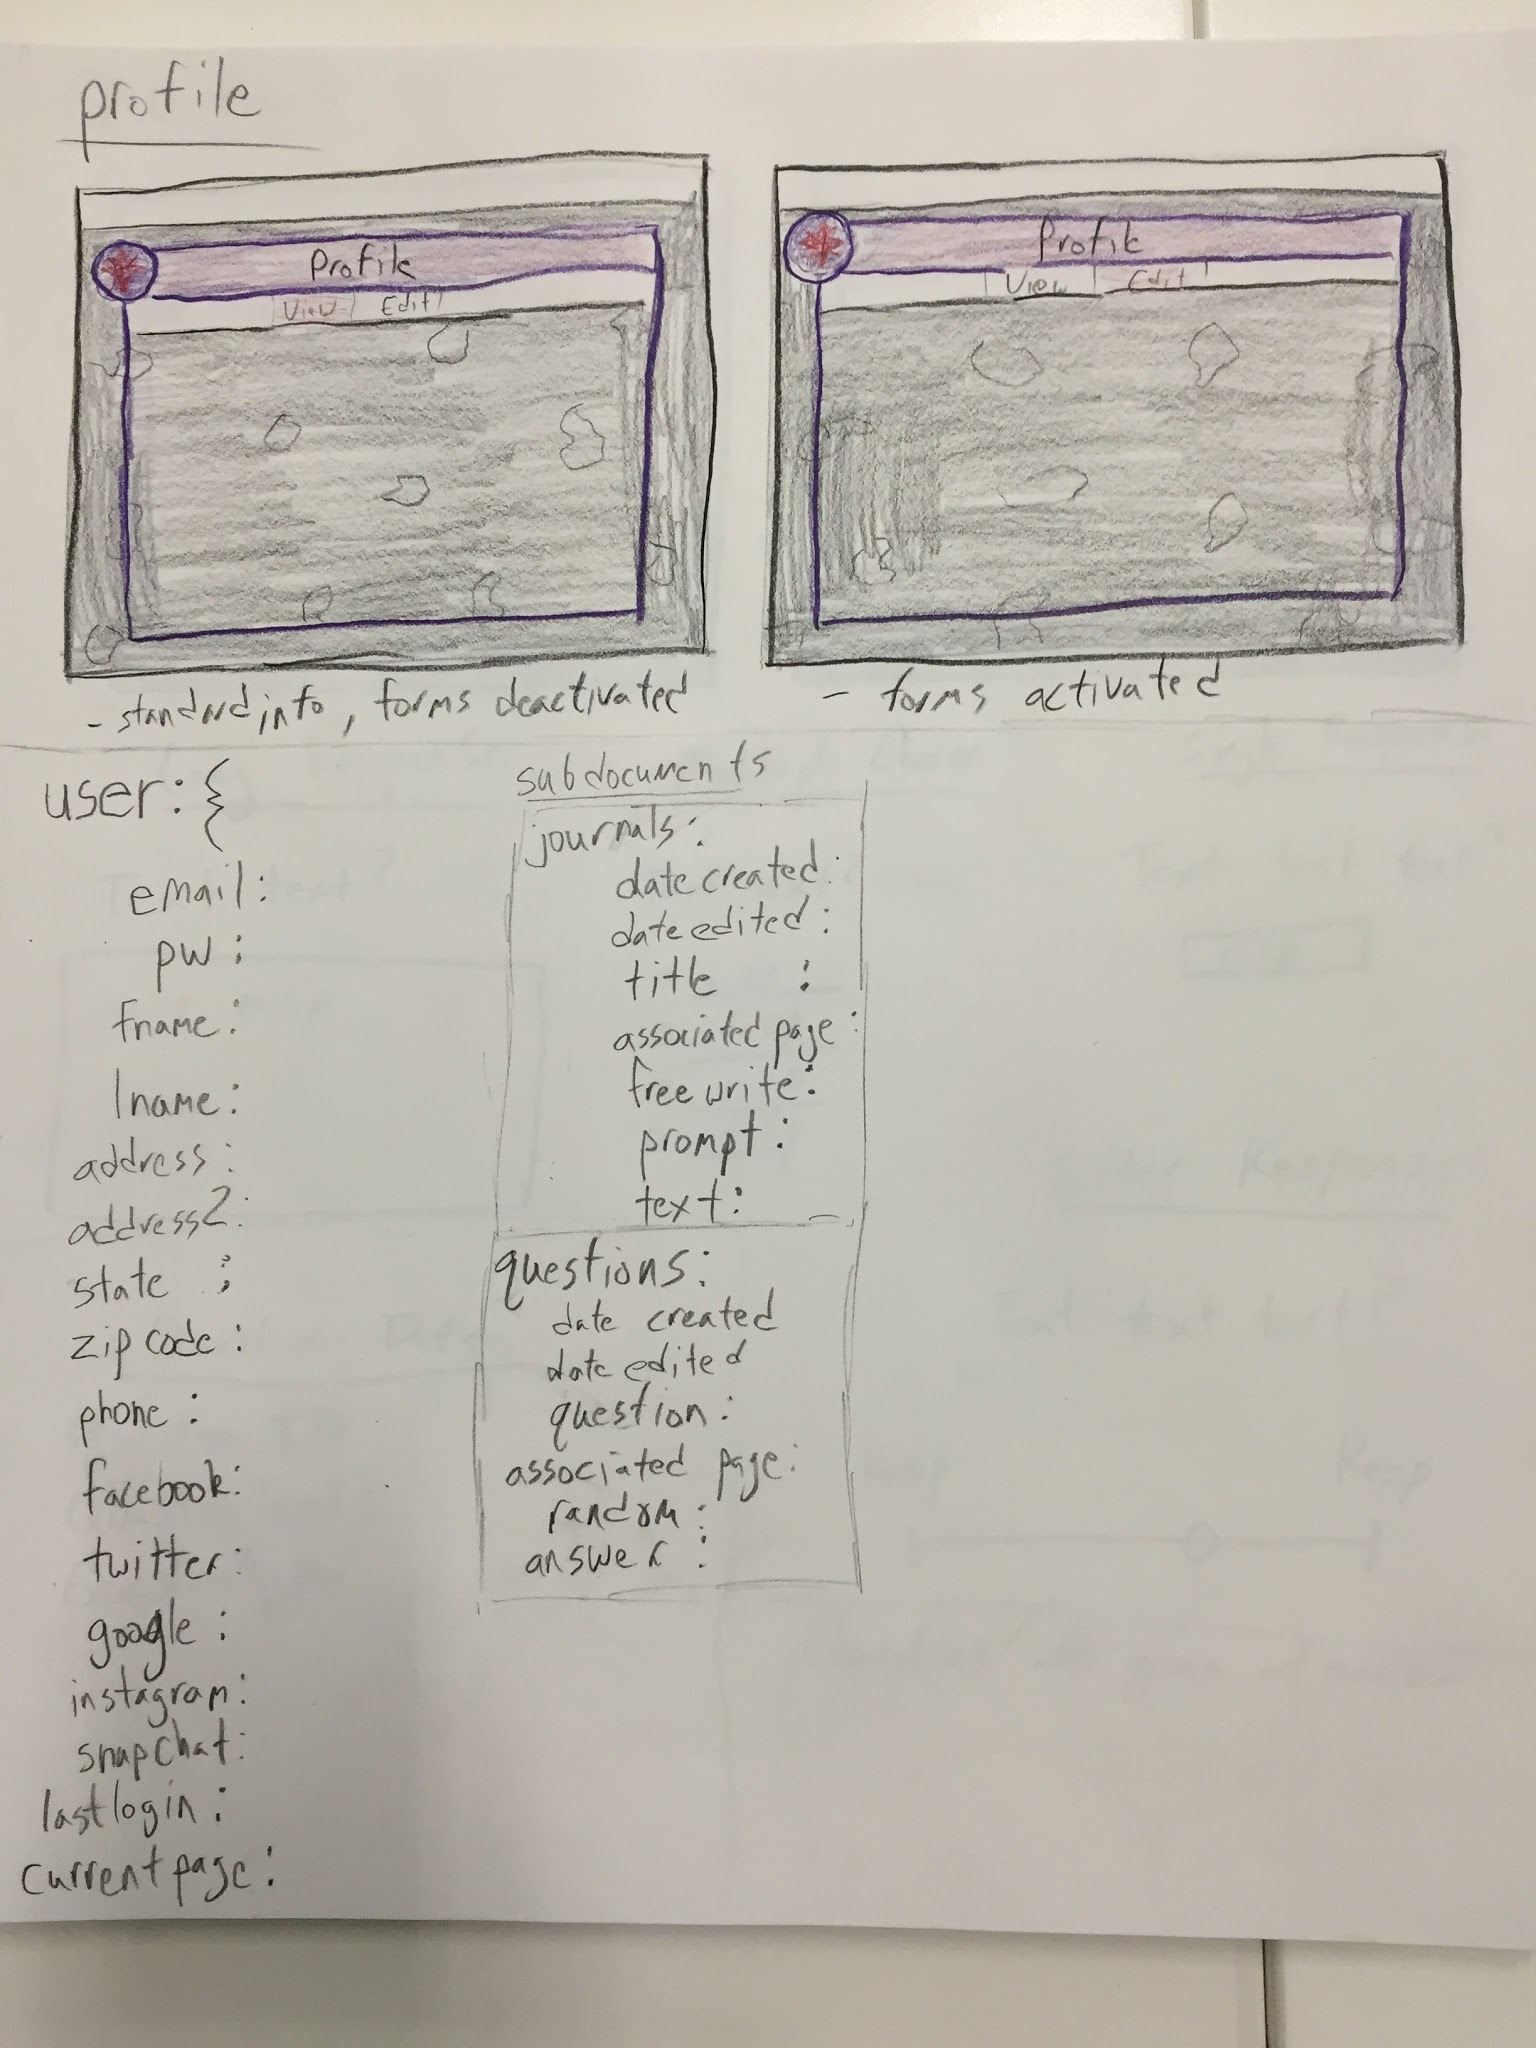 profile
Profile
View Edit
- standard info, forms deactivated
Profile
View Edit
- forms activated
user: {
email:
pw:
fname:
lname:
address:
address2:
state :
zip code:
phone :
facebook:
twitter:
google :
instagram:
snapchat:
lastlogin:
currentpage:
subdocuments
journals:
datecreated:
dateedited:
title :
associated page:
freewrite:
prompt:
text:
questions:
date created
date edited
question:
associated page:
random:
answer :